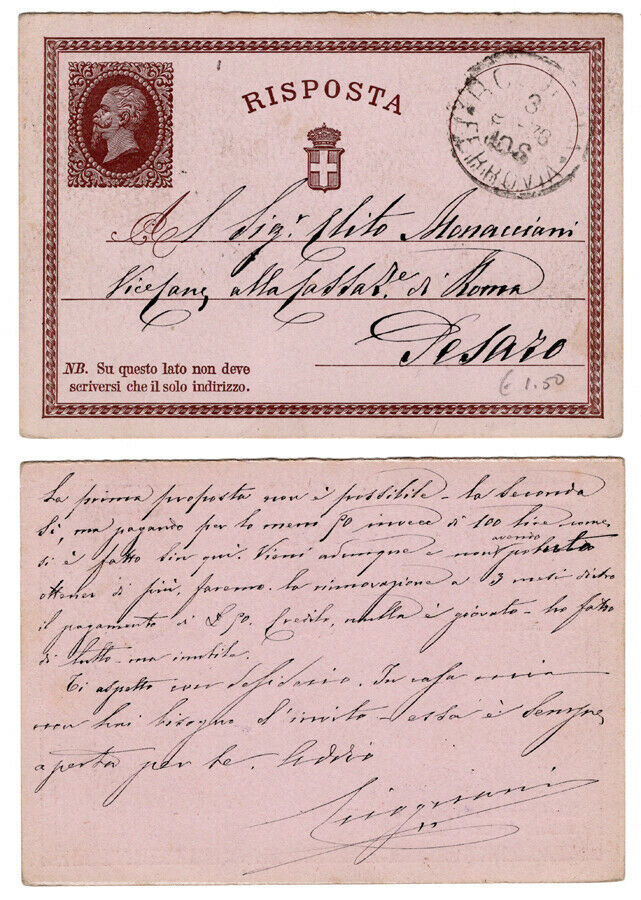 RISPOSTA
Al Sig.r Elito Monacciani
alla di Roma
Pesaro
NB. Su questo lato non deve
scriversi che il solo indirizzo.
€ 1.50
La prima proposta non è possibile - la seconda
Sì, ma pagando per lo meno 50 invece di 100 lire come
si è fatto sin qui. Vieni adunque e non avendo potuto
ottener di più, faremo la rinnovazione a 3 mesi dietro
il pagamento di £ 50. Credilo, nulla è giovato - ho fatto
di tutto - ma inutile.
Ti aspetto con desiderio. In casa mia
non hai bisogno d'invito - essa è sempre
aperta per te. Addio